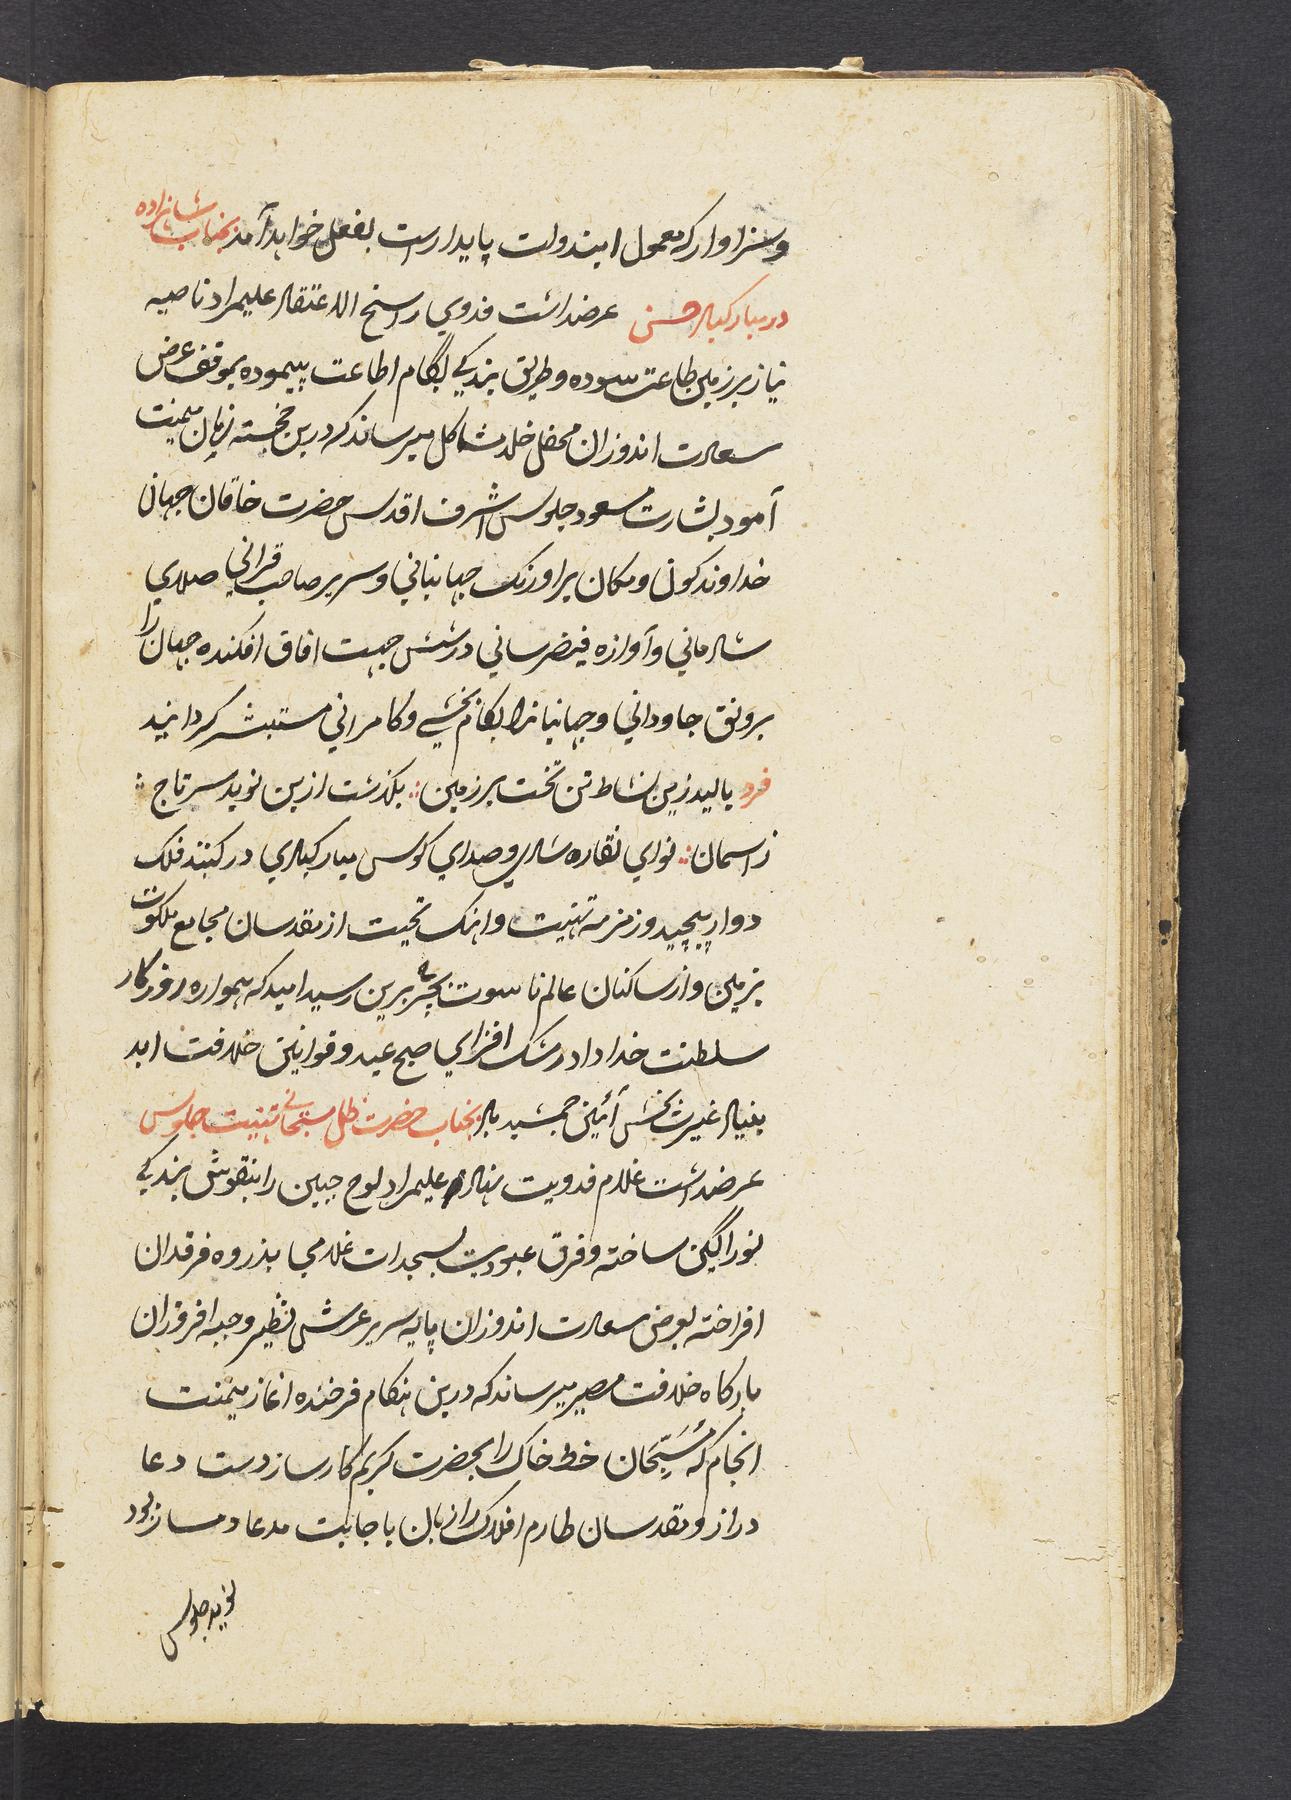 وسزاوار که معمول ایندولت پایدار است بفعل خواهد آمد بجناب شاهزاده
در مبارکباد جشن عرضداشت فدوي راسخ الاعتقاد علیمراد ناصیه
نیاز بر زمین طاعت سوده و طریق بندکي بکام اطاعت پیموده بموقف عرض
سعادت اندوزان محفل خلد مشاکل میرساند که درین خجسته زمان میمنت
آمود بشارت مسعود جلوس اشرف اقدس حضرت خاقان جهان
خداوند کون و مکان بر اورنک جهانباني و سریر صاحب قراني صلاي
شادماني و آوازه فیضرساني در شش جهت افاق افکنده جهان را
برونق جاوداني و جهانیانرا بکام بخشي و کامراني مستبشر کردانید
فرد بالید زمین نشاط تن تخت بر زمین بکذشت ازین نوید سر تاج
ز اسمان نواي نقاره شادي و صداي کوس مبارکبادي در کنبد فلک
دوار پیچید و زمزمه تهنیت و اهنک تحیت از مقدسان مجامع ملکوت
بزمین و از ساکنان عالم ناسوت بچرخ برین رسید امید که همواره روزکار
سلطنت خداداد رشک افزاي صبح عید و قوانین خلافت ابد
بنیاد غیرت بخش آئین جمشید باد بجناب حضرت ظل سبحاني تهنیت جلوس
عرضداشت غلام فدویت نهاد علیمراد لوح جبین را بنقوش بندکي
نور اکین ساخته و فرق عبودیت بسجدات غلامي بذروه فرقدان
افراخته بعرض سعادت اندوزان پایه سریر عرش نظیر و جبه افروزان
بارکاه خلافت مصیر میرساند که درین هنکام فرخنده اغاز میمنت
انجام که مُسَبِّحان خطه خاک را بحضرت کریم کارساز دست دعا
دراز و مقدسان طارم افلاک را زبان باجابت مدعا دمساز بود
نوید جلوس